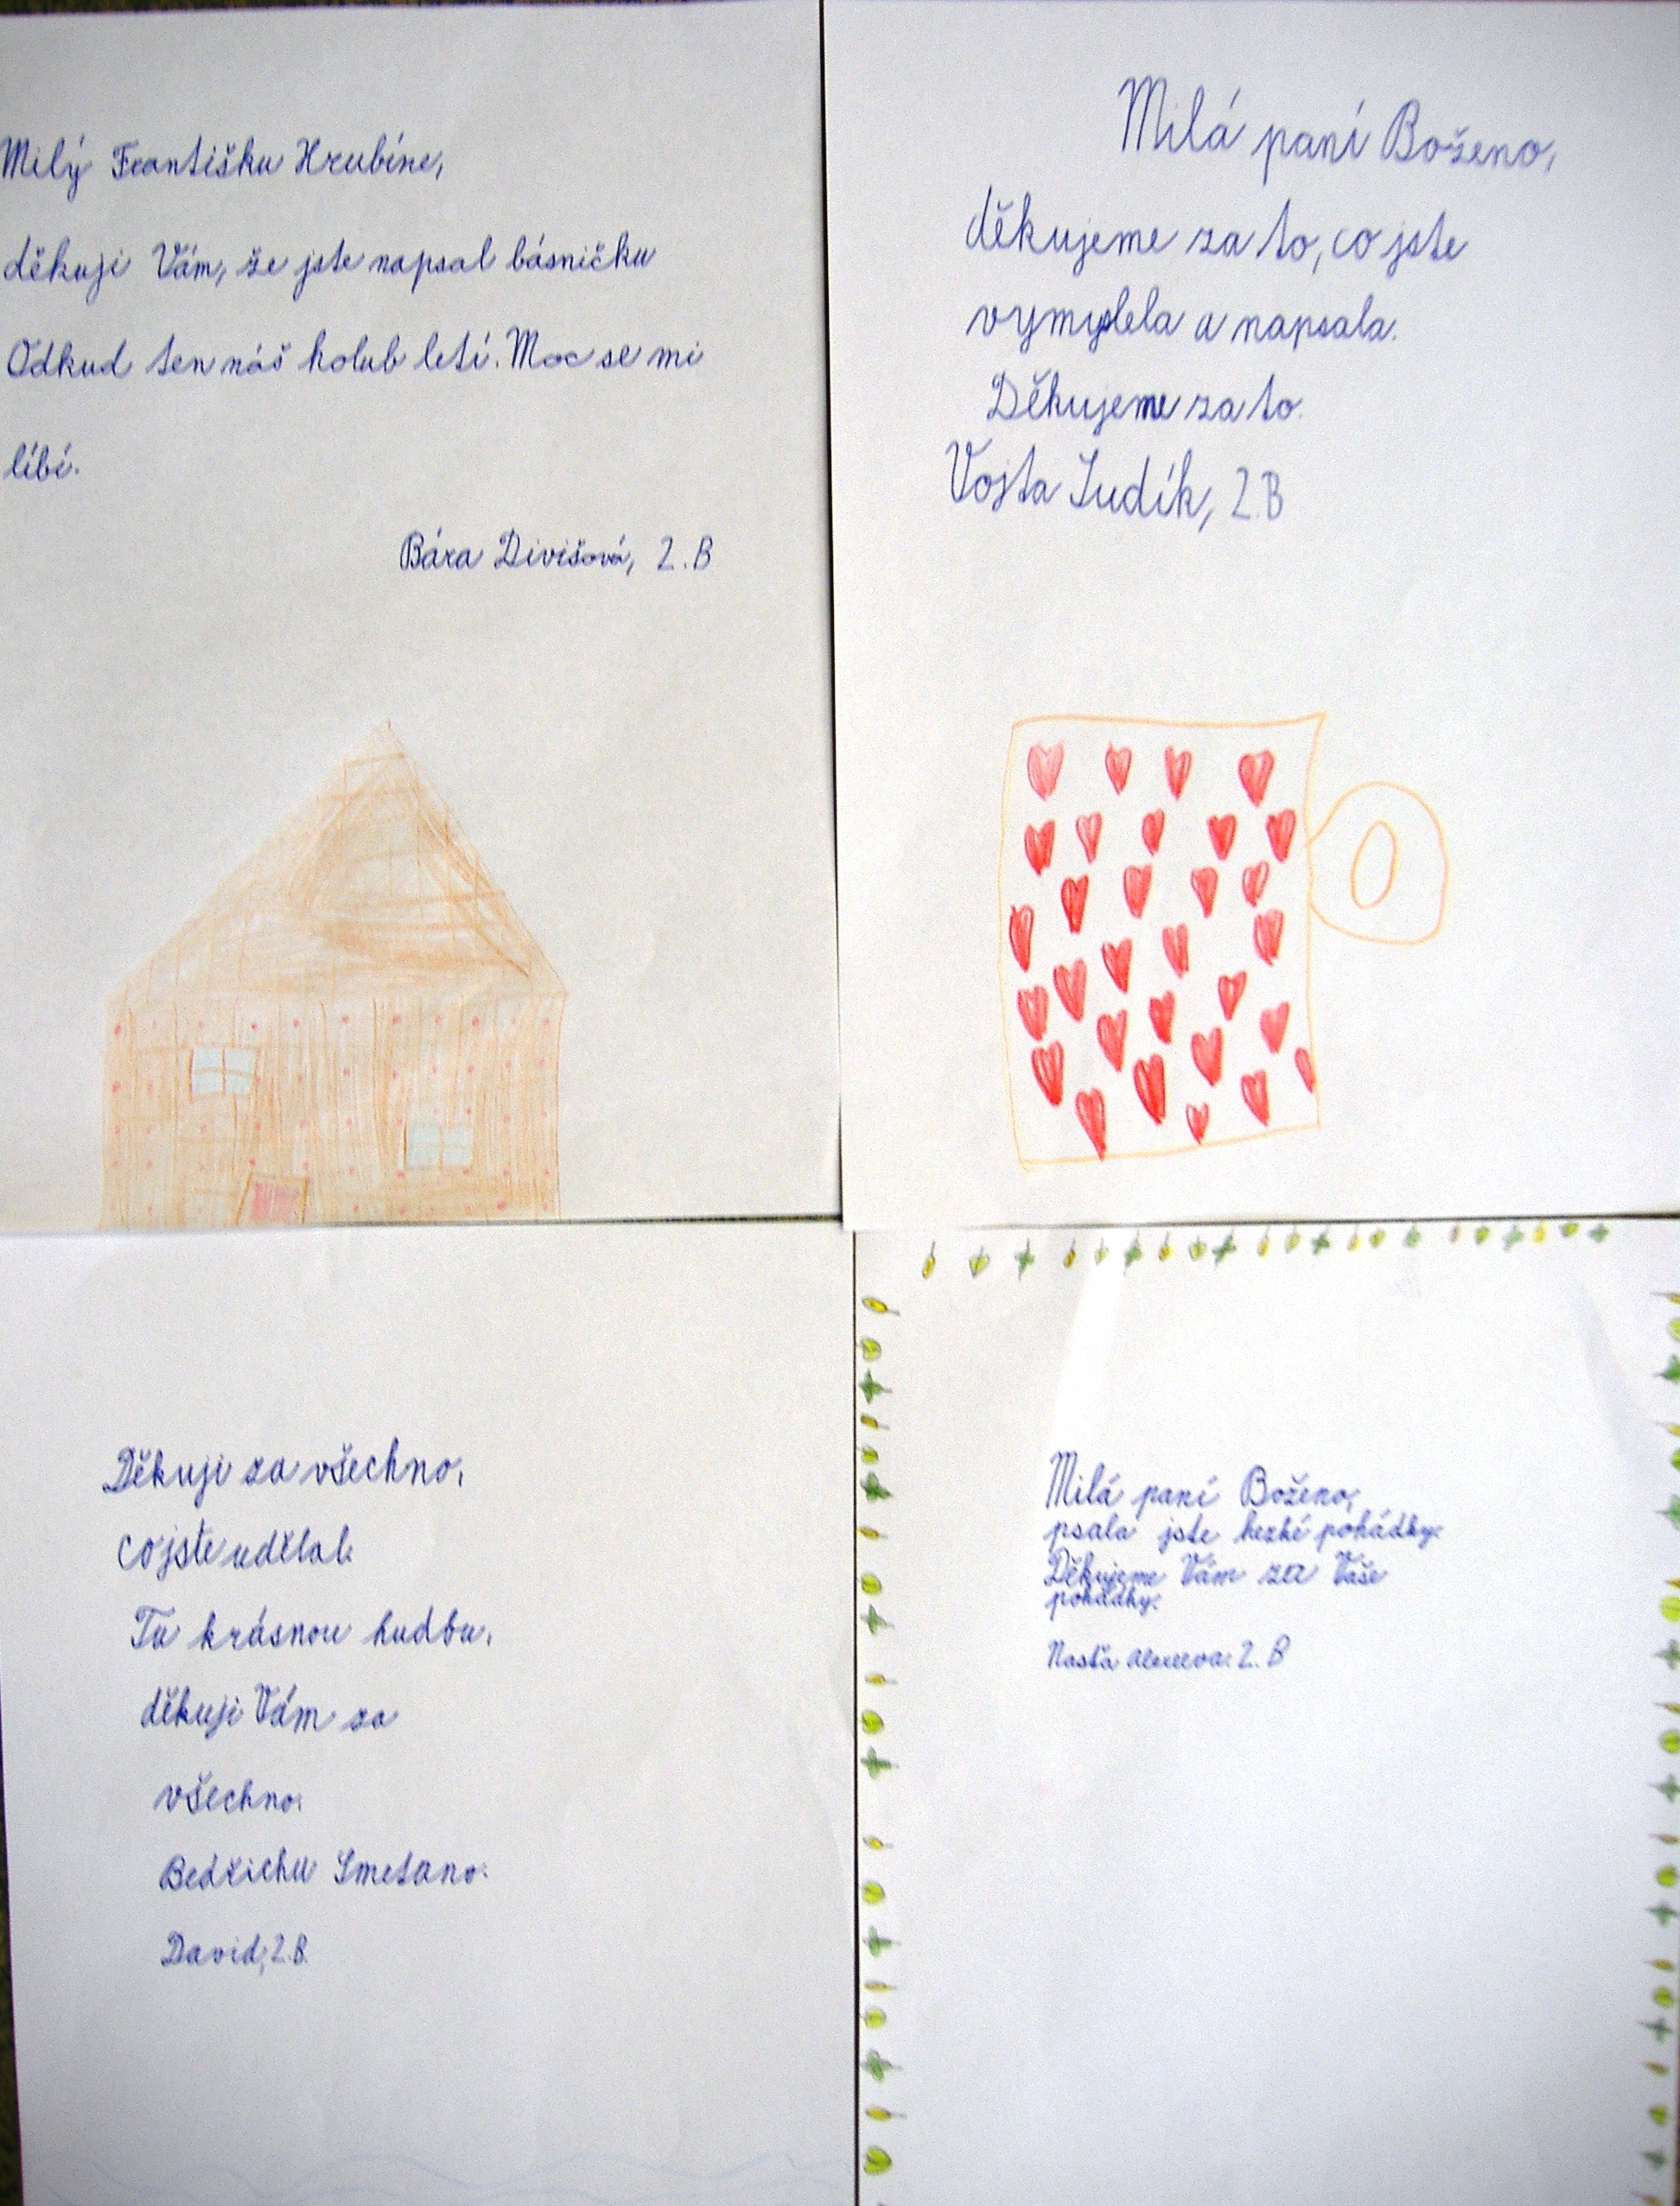 Milý Františku Hrubíne,
děkuji Vám, že jste napsal básničku
Odkud ten náš holub letí. Moc se mi
líbí.
Bára Divišová, 2.B
Milá paní Boženo,
děkujeme za to, co jste
vymyslela a napsala.
Děkujeme za to.
Vojta Ludík, 2.B
Děkuji za všechno,
co jste udělal.
Tu krásnou hudbu,
děkuji Vám za
všechno.
Bedřichu Smetano.
David, 2.B.
Milá paní Boženo,
psala jste hezké pohádky.
Děkujeme Vám za Vaše
pohádky.
Nasťa Alexeeva. 2.B